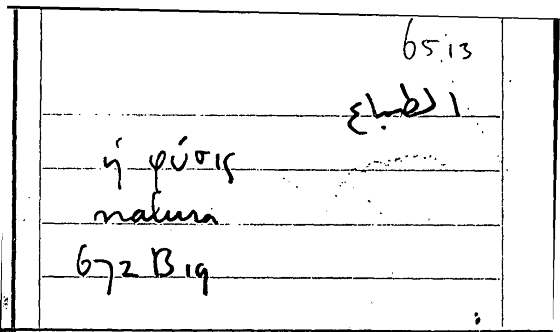 65,13
الطباع
ἡ φύσις
natura
672 B 19